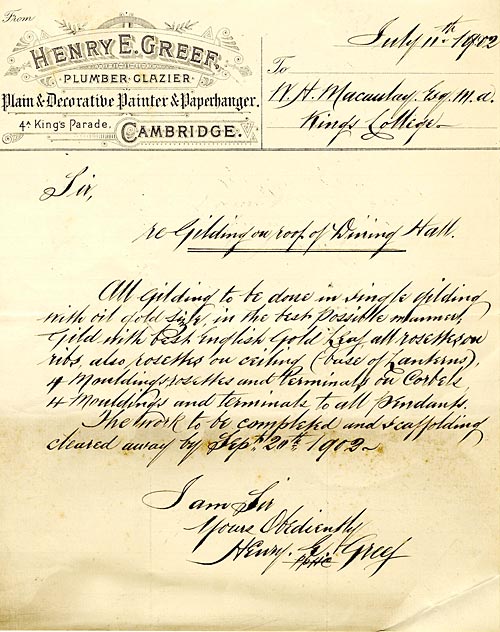 From
HENRY E. GREEF,
PLUMBER·GLAZIER
Plain & Decorative Painter & Paperhanger.
4A King's Parade, CAMBRIDGE.
July 11th 1902
To
W. H. Macaulay. Esq. M.a.
Kings College.
Sir,
re Gilding on roof of Dining Hall.
All Gilding to be done in single gilding
with oil gold size, in the best possible manner,
Gild with best English Gold Leaf all rosettes on
ribs, also rosettes on ceiling (base of Lanterns),
4 Mouldings rosettes and terminals on Corbels,
4 Mouldings and terminals to all pendants.
The work to be completed and scaffolding
cleared away by Sept. 20th 1902
I am Sir
Yours Obediently
Henry. E. Greef